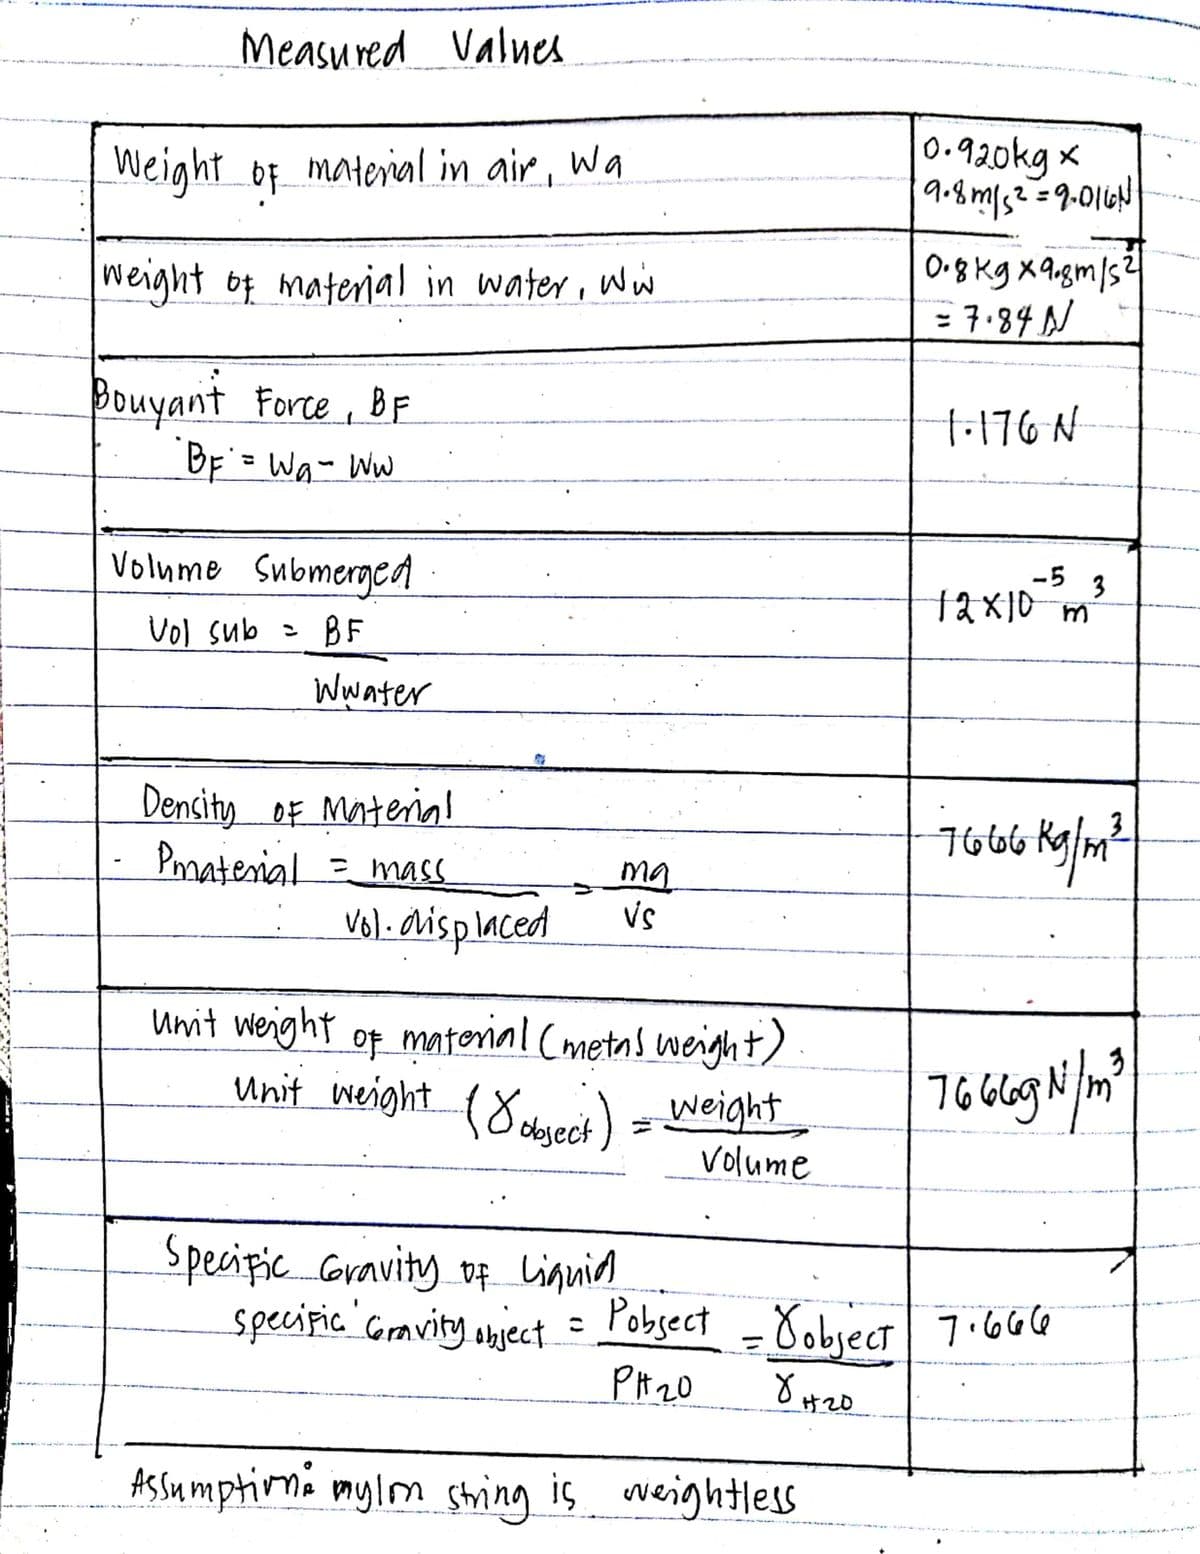 Measured Values
Weight of material in air, Wa
0.920kg ×
9.8m/s² = 9.016N
Weight of material in water, Ww
0.8kg × 9.8m/s²
= 7.84 N
Bouyant Force, BF
BF = Wa - Ww
1.176 N
Volume Submerged
Vol sub = BF
Wwater
12×10⁻⁵ m³
Density of Material
Pmaterial = mass = ma
Vol. displaced vs
7666 Kg/m³
Unit weight of material (metal weight)
Unit weight (γobject) = weight
Volume
7666g N/m³
Specific Gravity of Liquid
Specific Gravity object = Pobject = γobject
PH20 γH20
7.666
Assumption: nylon string is weightless